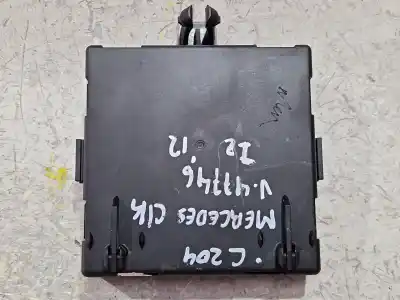 C204
MERCEDES Clk
V.47746
I2 12